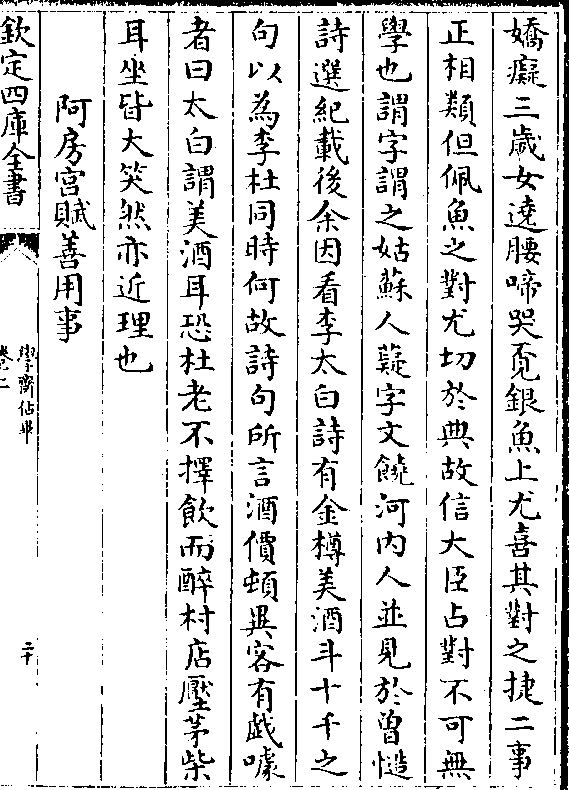 嬌癡三歲女遶腰啼哭覓銀魚上尤喜其對之捷二事
正相類但佩魚之對尤切於典故信大臣占對不可無
學也謂字謂之姑蘇人薿字文饒河内人並見於曾慥
詩選紀載後余因看李太白詩有金樽美酒斗十千之
句以為李杜同時何故詩句所言酒價頓異客有戯噱
者曰太白謂美酒耳恐杜老不擇飲而醉村店壓茅柴
耳坐皆大笑然亦近理也
阿房宮賦善用事
欽定四庫全書
學齋佔畢
卷二
二十